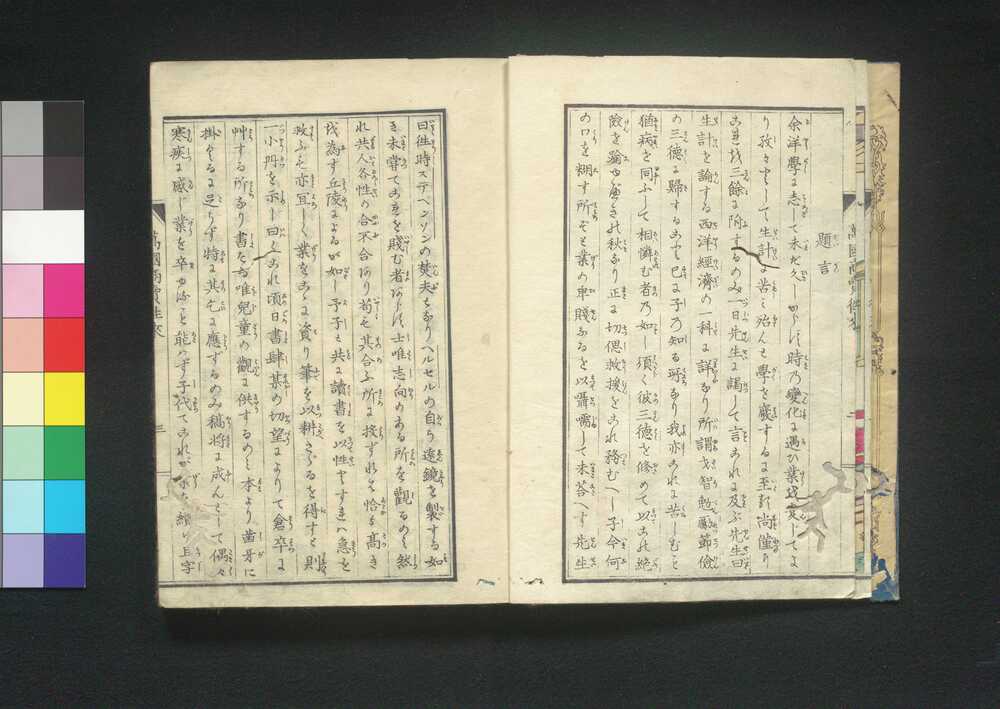 題言
余洋學に志して未だ久しからず時乃變化に遇ひ業
り孜々として生計に苦み殆んど學を廢するに至り尚僅り
三餘に附するのみ一日先生に謁して言これに及ぶ先生曰
生計を論する西洋經濟の一科に詳なり所謂才智勉勵節儉
の三德に歸すること已に子乃知る所なり我亦これに苦しむこと
猶病を同ふして相憐む者乃如し須く彼三德を修めて以
險を踰ゆ秋なり正に切偲救援をこれ務むべし子今何
の口を糊す所ぞと業の卑賤なるを以囁嚅して未答へず先生
曰往時ステヘンソンの焚夫なりヘルセルの自ら遠鏡を製する如
き未嘗てこれを賤む者あらず士唯志向のある所を觀るのみ然
れ共人各性の合不合あり苟も其合ふ所に投ずれば恰も高き
を為す丘陵によるが如し予子と共に讀書を以性とすれハ急を
救ふも亦宜しく業をこゝに資り筆を以耕さゞるを得ずと則
一小冊を示し曰くこれ頃日書肆某の切望によりて倉卒に
艸する所なり書たる唯兒童の觀に供するのミ本より齒牙に
掛くるに足らず特に其乞に應ずるのみ稿將に成んとして偶々
寒疾に感じ業を卒ゆること能はず子代てこれが
萬國商賣往來
三